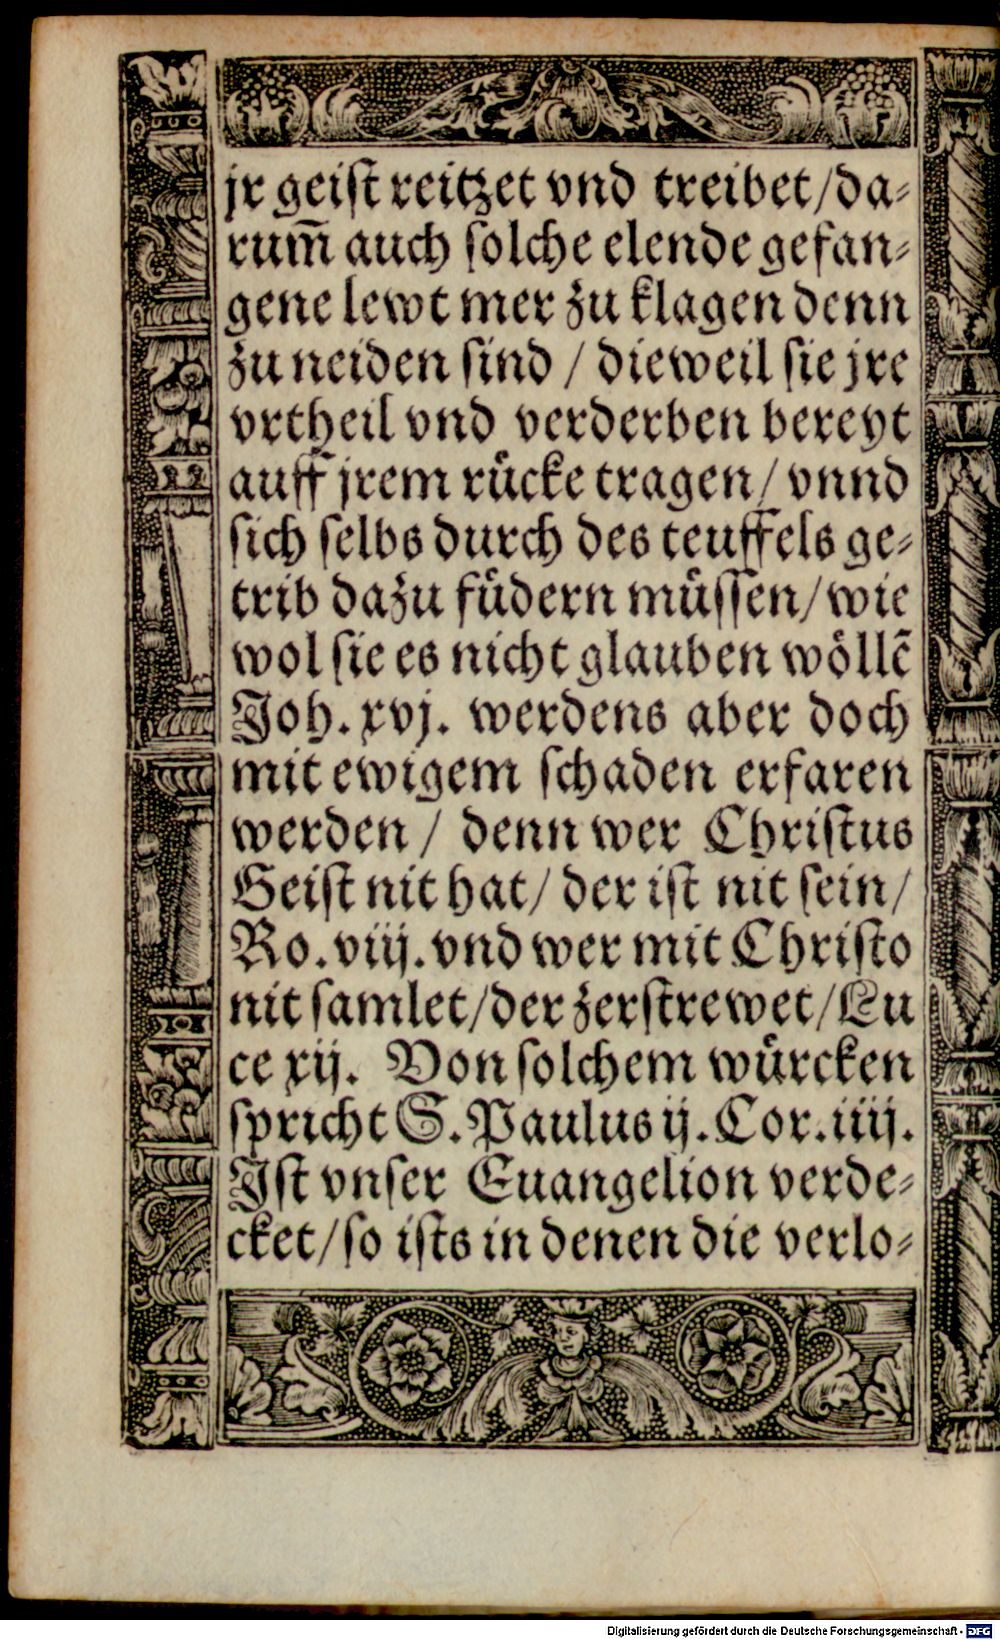 jr geiſt reitzet vnd treibet/da⸗
rum̄ auch ſolche elende gefan⸗
gene lewt mer zu klagen denn
zu neiden ſind / dieweil ſie jre
vrtheil vnd verderben bereyt
auff jrem rücke tragen/ vnnd
ſich ſelbs durch des teuffels ge⸗
trib dazu fůdern müſſen/wie
wol ſie es nicht glauben wöllē
Joh. xvj. werdens aber doch
mit ewigem ſchaden erfaren
werden / denn wer Chriſtus
Geiſt nit hat/ der iſt nit ſein/
Ro. viij. vnd wer mit Chriſto
nit ſamlet/der zerſtrewet/Lu
ce xij. Von ſolchem würcken
ſpricht S. Paulus ij. Cor. iiij.
Iſt vnſer Euangelion verde⸗
cket/ſo iſts in denen die verlo⸗
Digitalisierung gefördert durch die Deutsche Forschungsgemeinschaft - DFG